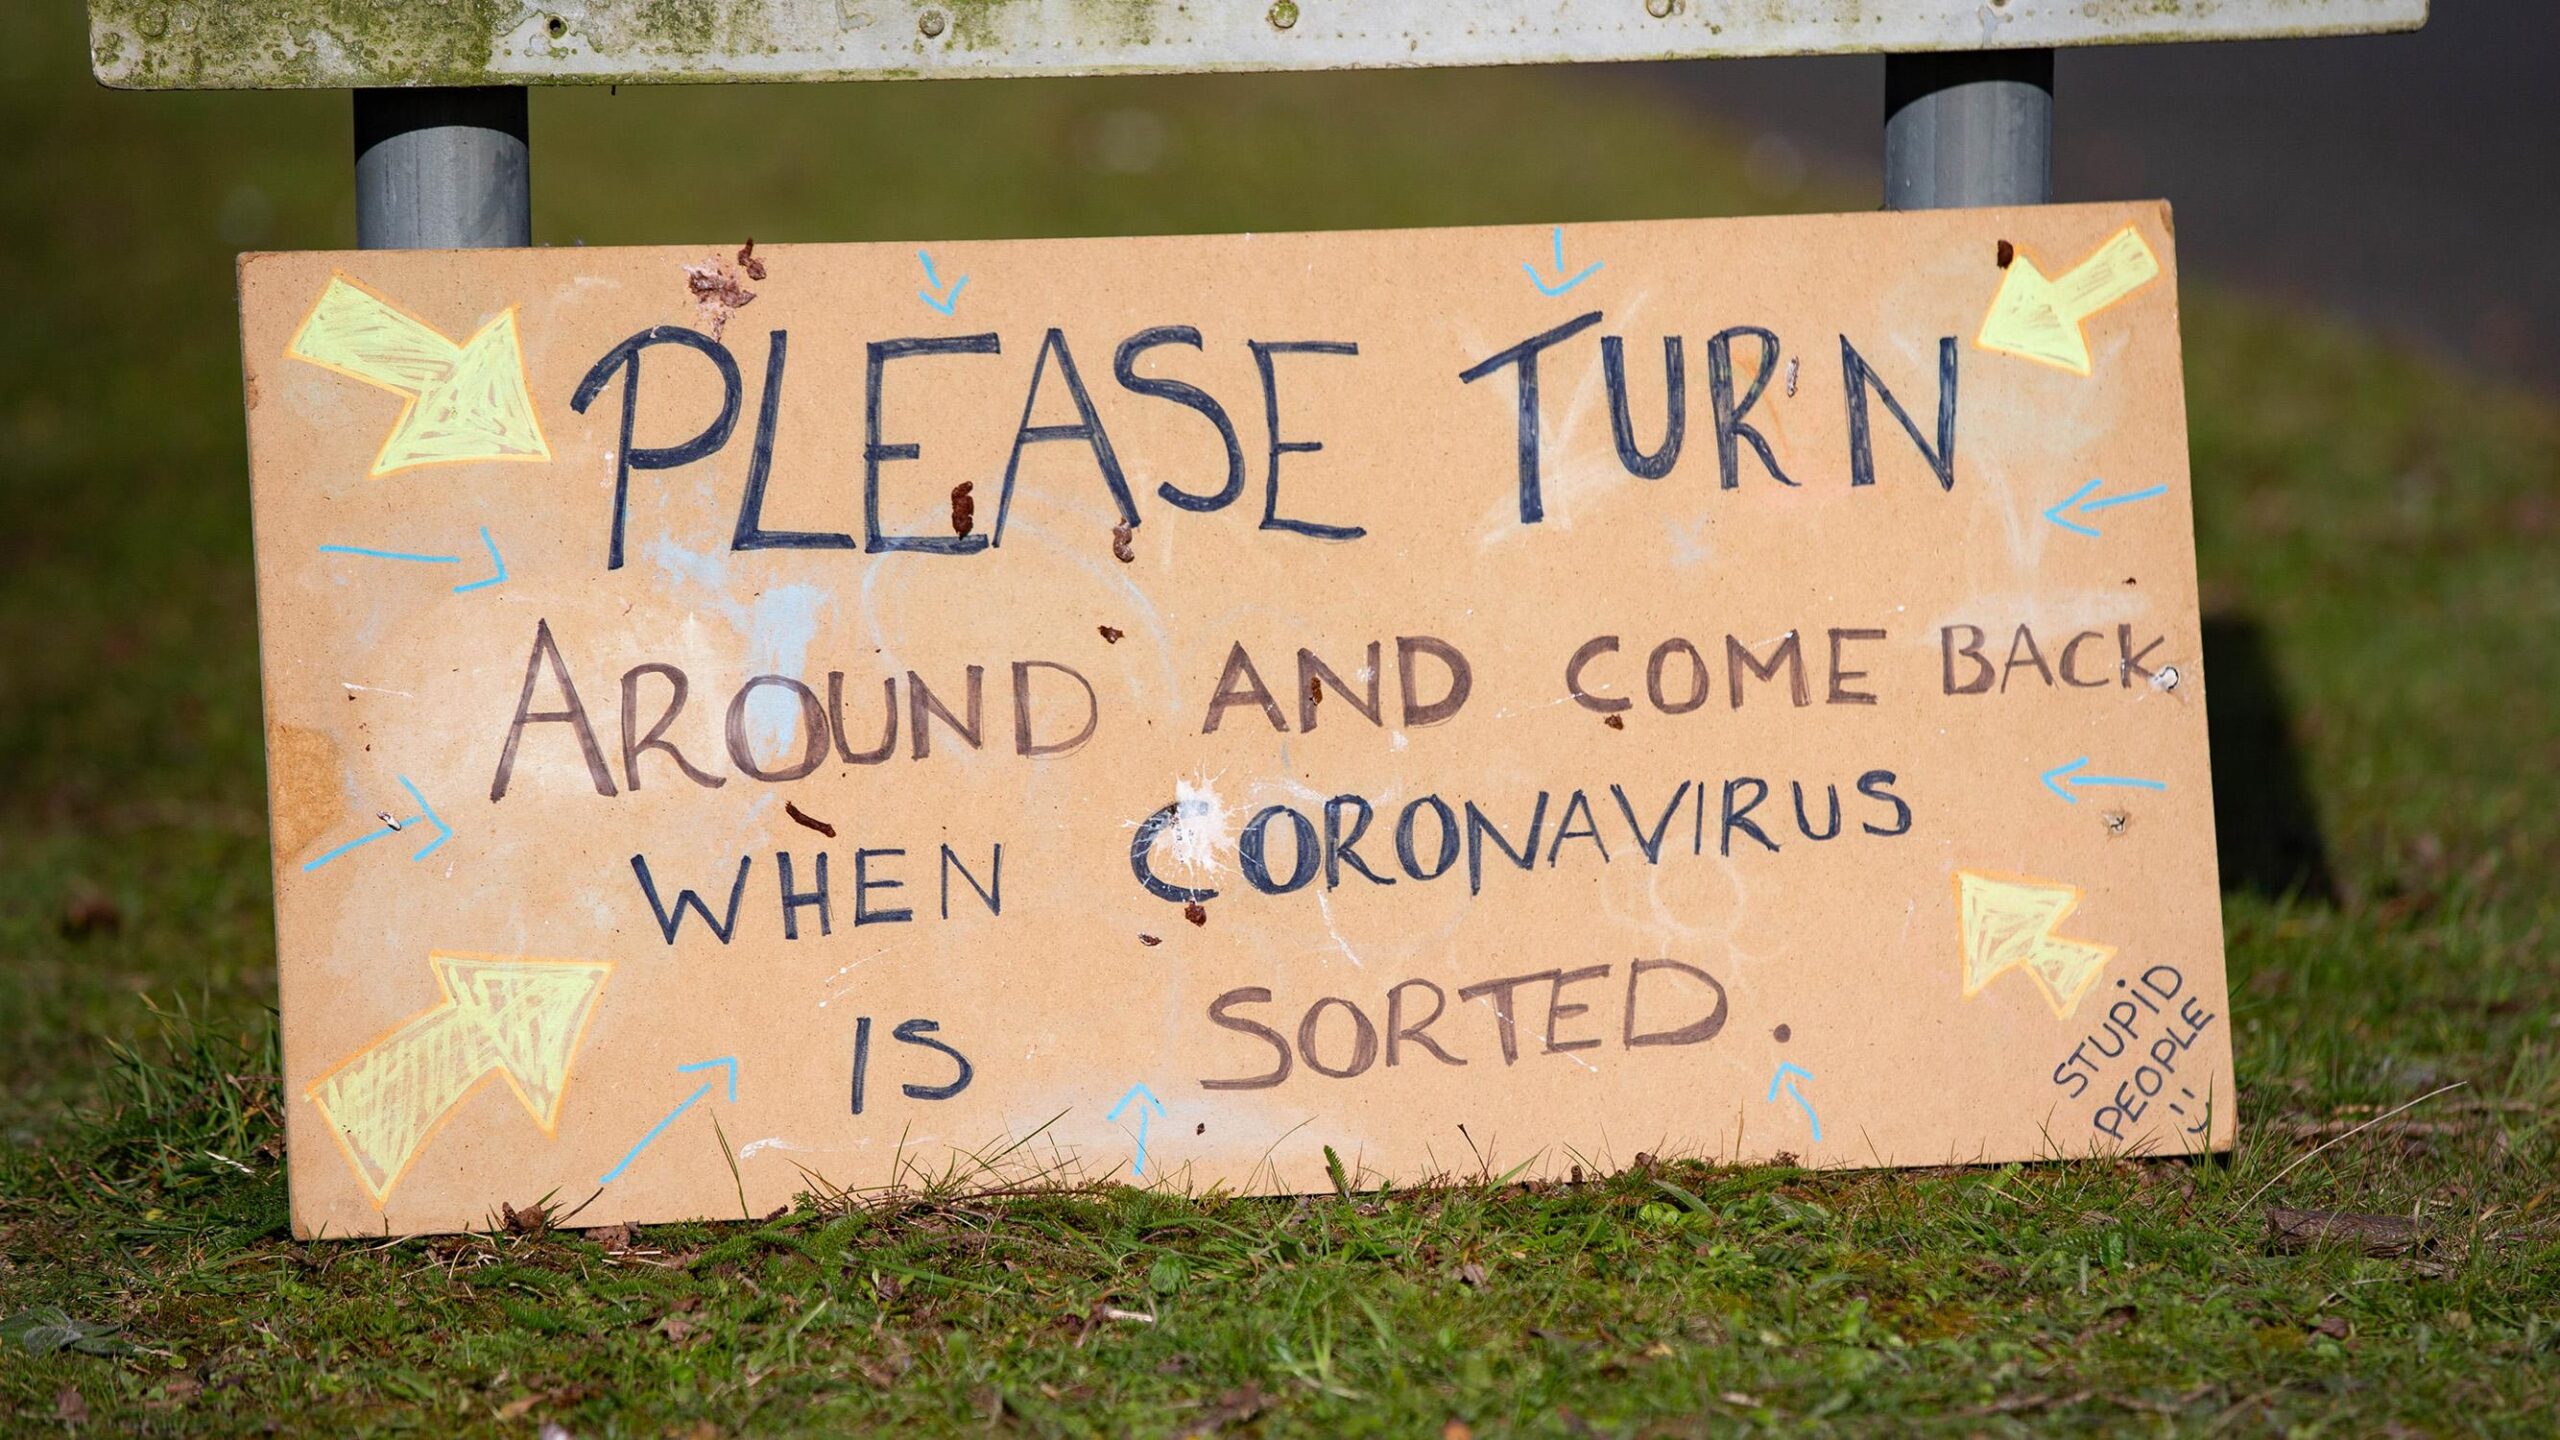 PLEASE TURN
AROUND AND COME BACK
WHEN CORONAVIRUS
IS SORTED.
STUPID
PEOPLE